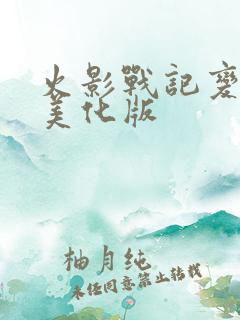 火影戰記變
美化版
柚月纯
未经同意禁止转载